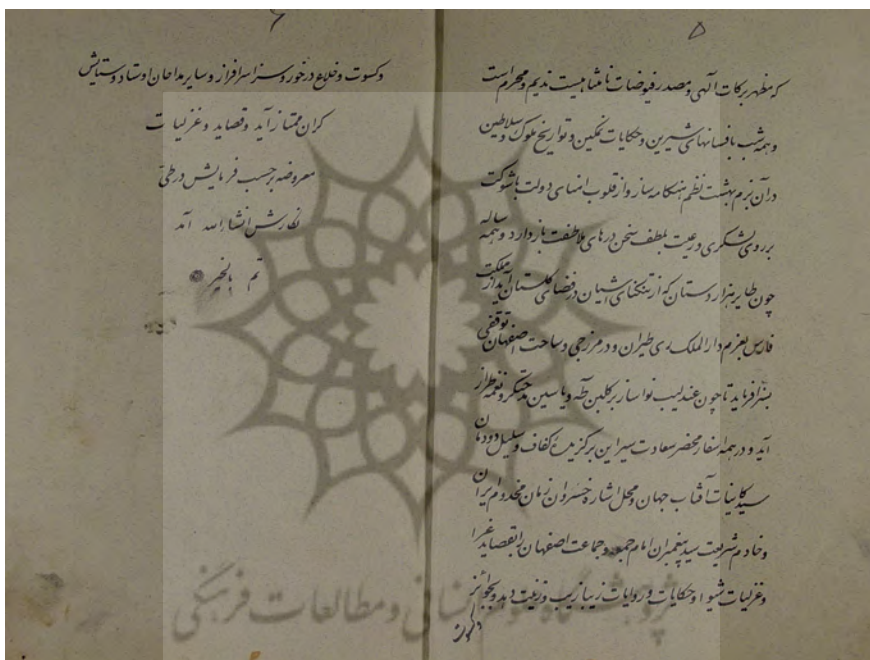 ۵
که مظهر برکات آلهی و مصدر فیوضات نامتناهیست ندیم و محرم است
و همه شب بافسانهای شیرین و حکایات نمکین و تواریخ ملوک و سلاطین
در آن بزم بهشت نظم هنکامه ساز و از قلوب امنای دولت با شوکت
بر روی لشکری و رعیت بلطف سخن درهای ملاطفت باز دارد و همه ساله
چون طایر هزار دستان که از تنکنای آشیان در فضای کلستان آید از مملکت
فارس بعزم دار الملک ری طیران و در مرز جی و ساحت اصفهان توقفی
بسزا فرماید تا چون عندلیب نوا ساز بر کلبن طه و یاسین مدحتکر و نغمه طراز
آید و در همه اسفار محضر سعادت سیر این برکزیدهٔ و سلیل دودمان
سید کاینات آفتاب جهان و محل اشاره خسروان زمان مخدوم ایران
و خادم شریعت سید پیغمبران امام جمعه و جماعت اصفهان را بقصاید غرا
و غزلیات شیوا و حکایات و روایات زیبا زیب و زینت دهد و بجوائز
وکسوت
۶
وکسوت و خلاع درخور و سزا سرافراز و سایر مداحان اوستاد و ستایش
کران ممتاز آید و قصاید و غزلیات
معروضه برحسب فرمایش در طی
نکارش انشاالله آمد
تم بالخیر
پژوهشگاه علوم انسانی و مطالعات فرهنگی